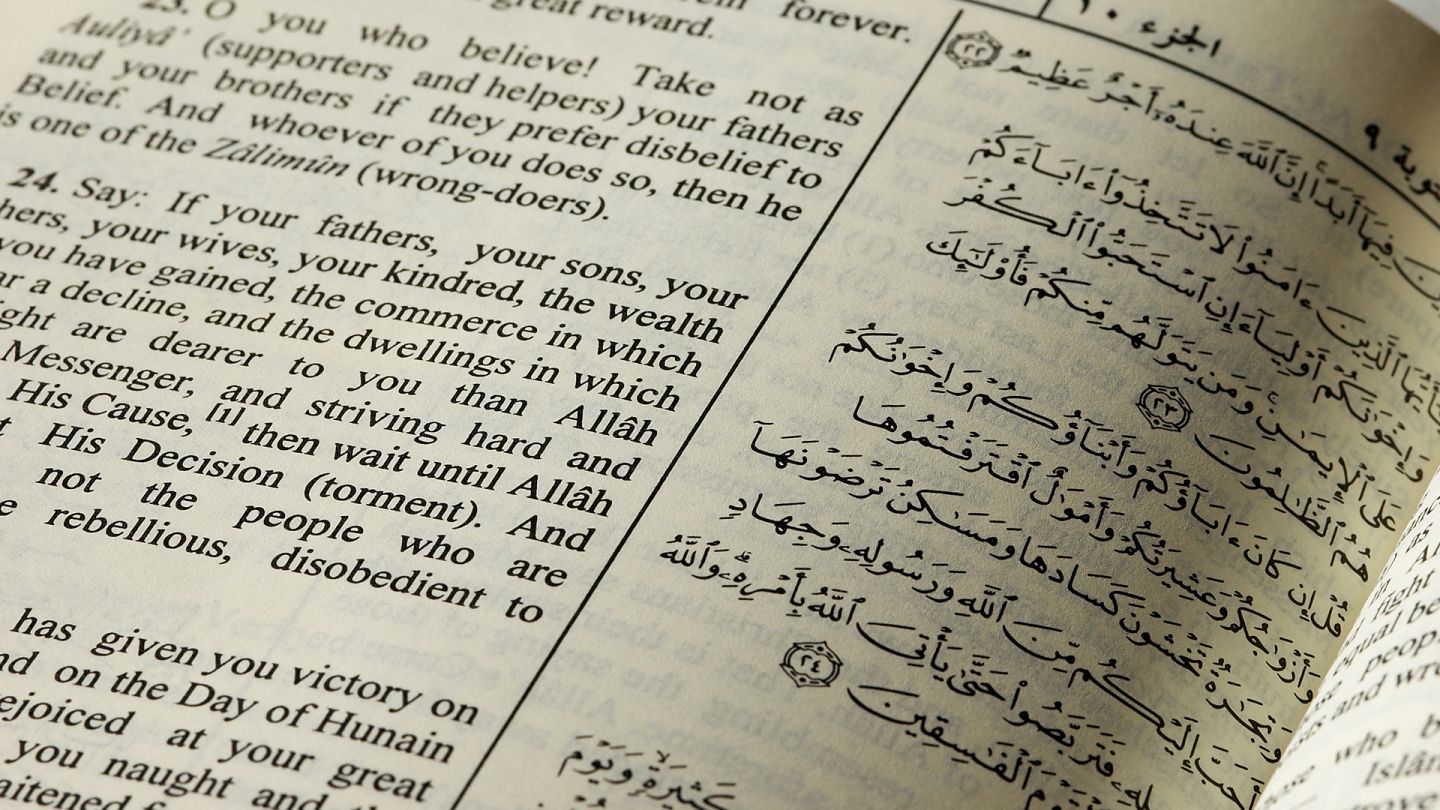 great reward.
forever.
23. O you who believe! Take not as
Auliyâ' (supporters and helpers) your fathers
and your brothers if they prefer disbelief to
Belief. And whoever of you does so, then he
is one of the Zâlimûn (wrong-doers).
24. Say: If your fathers, your sons, your
hers, your wives, your kindred, the wealth
you have gained, the commerce in which
ar a decline, and the dwellings in which
ight are dearer to you than Allâh
Messenger, and striving hard and
His Cause, [1] then wait until Allâh
t His Decision (torment). And
not the people who are
e rebellious, disobedient to
has given you victory on
nd on the Day of Hunain
ejoiced at your great
you naught and
الجزء ١٠
توبة ٩
فِيهَآ أَبَدًا ۚ إِنَّ ٱللَّهَ عِندَهُۥٓ أَجْرٌ عَظِيمٌ ٢٢
ٱلَّذِينَ ءَامَنُوا۟ لَا تَتَّخِذُوٓا۟ ءَابَآءَكُمْ
وَإِخْوَٰنَكُمْ أَوْلِيَآءَ إِنِ ٱسْتَحَبُّوا۟ ٱلْكُفْرَ
عَلَى ٱلْإِيمَٰنِ ۚ وَمَن يَتَوَلَّهُم مِّنكُمْ فَأُو۟لَٰٓئِكَ
هُمُ ٱلظَّٰلِمُونَ ٢٣
قُلْ إِن كَانَ ءَابَآؤُكُمْ وَأَبْنَآؤُكُمْ وَإِخْوَٰنُكُمْ
وَأَزْوَٰجُكُمْ وَعَشِيرَتُكُمْ وَأَمْوَٰلٌ ٱقْتَرَفْتُمُوهَا
وَتِجَٰرَةٌ تَخْشَوْنَ كَسَادَهَا وَمَسَٰكِنُ تَرْضَوْنَهَآ
أَحَبَّ إِلَيْكُم مِّنَ ٱللَّهِ وَرَسُولِهِۦ وَجِهَادٍ
لِهِۦ فَتَرَبَّصُوا۟ حَتَّىٰ يَأْتِىَ ٱللَّهُ بِأَمْرِهِۦ ۗ وَٱللَّهُ
ٱلْفَٰسِقِينَ ٢٤
كَثِيرَةٍ ۙ وَيَوْمَ
as
fight
equal be
peopl
and wro
who b
Islâm